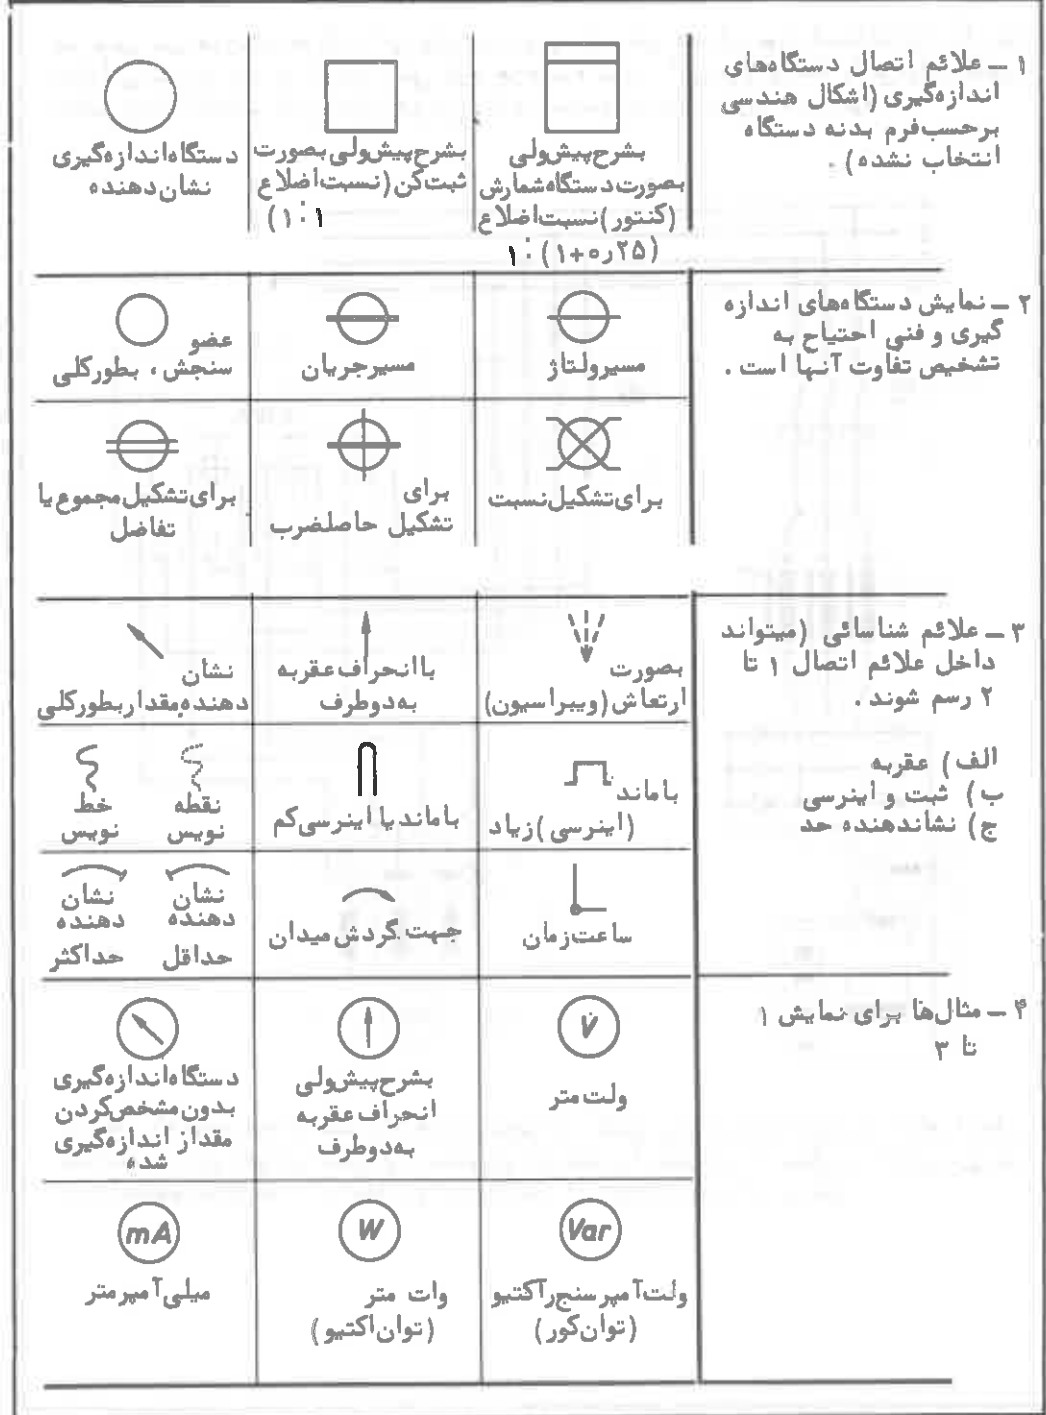 ۱ ــ علائم اتصال دستگاههای
اندازهگیری (اشکال هندسی
برحسبفرم بدنه دستگاه
انتخاب نشده) .
بشرحپیشولی
بصورت دستگاهشمارش
(کنتور) نسبتاضلاع
۱ : (۱+۰٫۲۵)
بشرحپیشولیبصورت
ثبتکن (نسبتاضلاع
۱ : ۱)
دستگاهاندازهگیری
نشاندهنده
۲ ــ نمایش دستگاههای اندازه
گیری و فنی احتیاج به
تشخیص تفاوت آنها است .
مسیرولتاژ
مسیرجریان
عضو
سنجش ، بطورکلی
برایتشکیلنسبت
برای
تشکیل حاصلضرب
برایتشکیلمجموعیا
تفاضل
۳ ــ علائم شناسائی (میتواند
داخل علائم اتصال ۱ تا
۲ رسم شوند .
الف) عقربه
ب) ثبت و اینرسی
ج) نشاندهنده حد
بصورت
ارتعاش(ویبراسیون)
باانحرافعقربه
بهدوطرف
نشان
دهندهمقداربطورکلی
باماند
(اینرسی)زیاد
باماندیااینرسیکم
نقطه
نویس
خط
نویس
ساعتزمان
جهتگردشمیدان
نشان
دهنده
حداقل
نشان
دهنده
حداکثر
۴ ــ مثالها برای نمایش ۱
تا ۳
V
ولتمتر
بشرحپیشولی
انحرافعقربه
بهدوطرف
دستگاهاندازهگیری
بدونمشخصکردن
مقداز اندازهگیری
شده
Var
ولتآمپرسنجرآکتیو
(توانکور)
W
وات متر
(تواناکتیو)
mA
میلیآمپرمتر